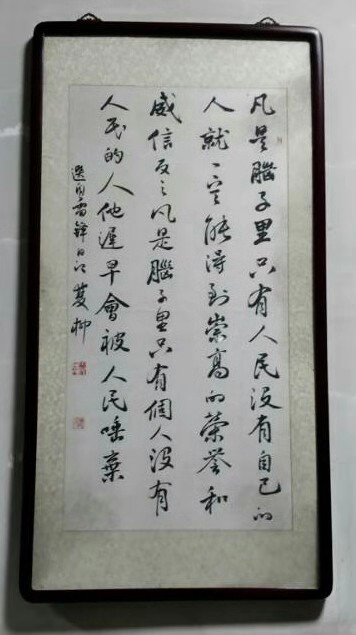 凡是腦子里只有人民沒有自己的
人就一定能得到崇高的榮誉和
威信反之凡是腦子里只有個人沒有
人民的人他遲早會被人民唾棄
選自雷鋒日记